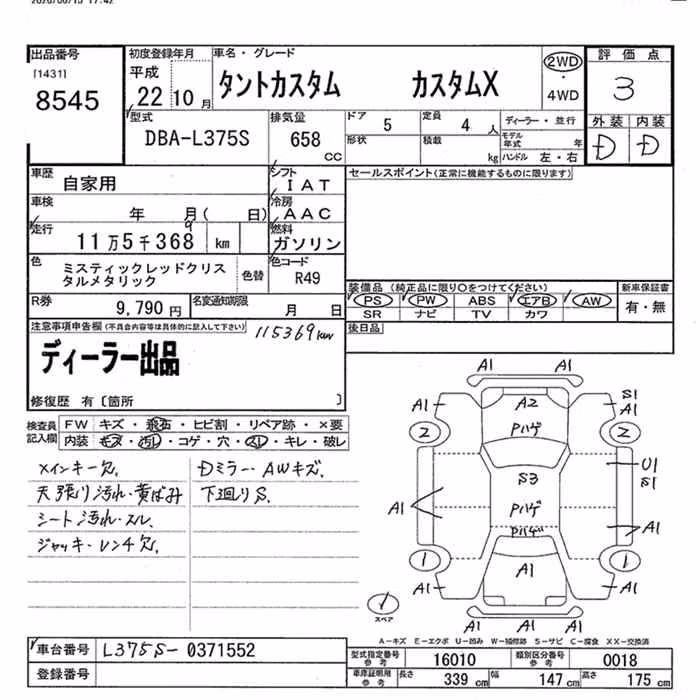 2026/06/15 17:42
出品番号 初度登録年月 車名・グレード 評価点
[1431] 平成 タントカスタム カスタムX 2WD ・ 4WD 3
8545 22 10月
型式 排気量 ドア 5 定員 4人 ディーラー・並行 外装 内装
DBA-L375S 658 CC 形状 積載 kg モデル年式 年 D D
ハンドル 左・右
車歴 自家用 シフト IAT セールスポイント(正常に機能するものに限ります)
車検 年 月( 日) 冷房 AAC
走行 11万5千368 9 km 燃料 ガソリン
色 ミスティックレッドクリス 色替 色コード R49
タルメタリック
装備品(純正品に限り○をつけてください) 新車保証書
R券 9,790円 名変通知期限 月 日 PS PW ABS エアB AW 有・無
SR ナビ TV カワ
注意事項申告欄(不具合内容等は具体的に記入して下さい) 115369km 後日品
ディーラー出品
修復歴 有〔箇所 〕
検査員 記入欄 FW キズ・飛石・ヒビ割・リペア跡・×要
内装 キズ・汚れ・コゲ・穴・スレ・キレ・破レ
メインキー欠. Dミラー・AWキズ.
天張り汚れ・黄ばみ 下廻りS.
シート汚れ・スレ.
ジャッキ・レンチ欠.
A1 A1
A1 A2 S1
A1
2 Pハゲ 2
S3 U1
S1
A1 Pハゲ A1
Pハゲ
1 A1 1
A1 A1
A1 A1
1
スペア
A-キズ E-エクボ U-凹み W-補修跡 S-サビ C-腐食 XX-交換済
車台番号 L375S-0371552 型式指定番号 参考 16010 類別区分番号 参考 0018
登録番号 車庫証明用 参考 長さ 339cm 幅 147cm 高さ 175cm